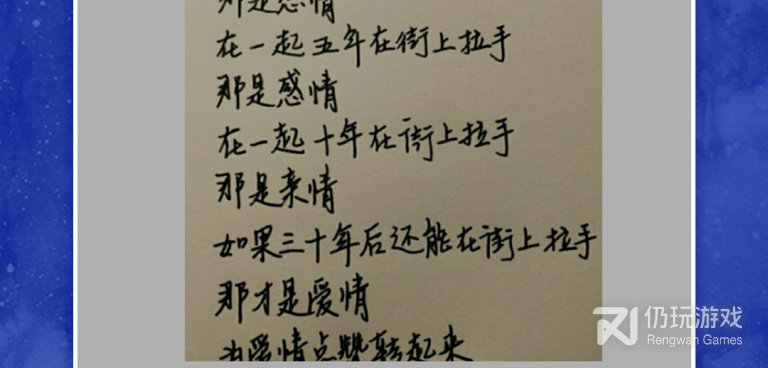 那是感情
在一起五年在街上拉手
那是感情
在一起十年在街上拉手
那是亲情
如果三十年后还能在街上拉手
那才是爱情
为爱情点赞转起来
仍玩游戏
Rengwan Games